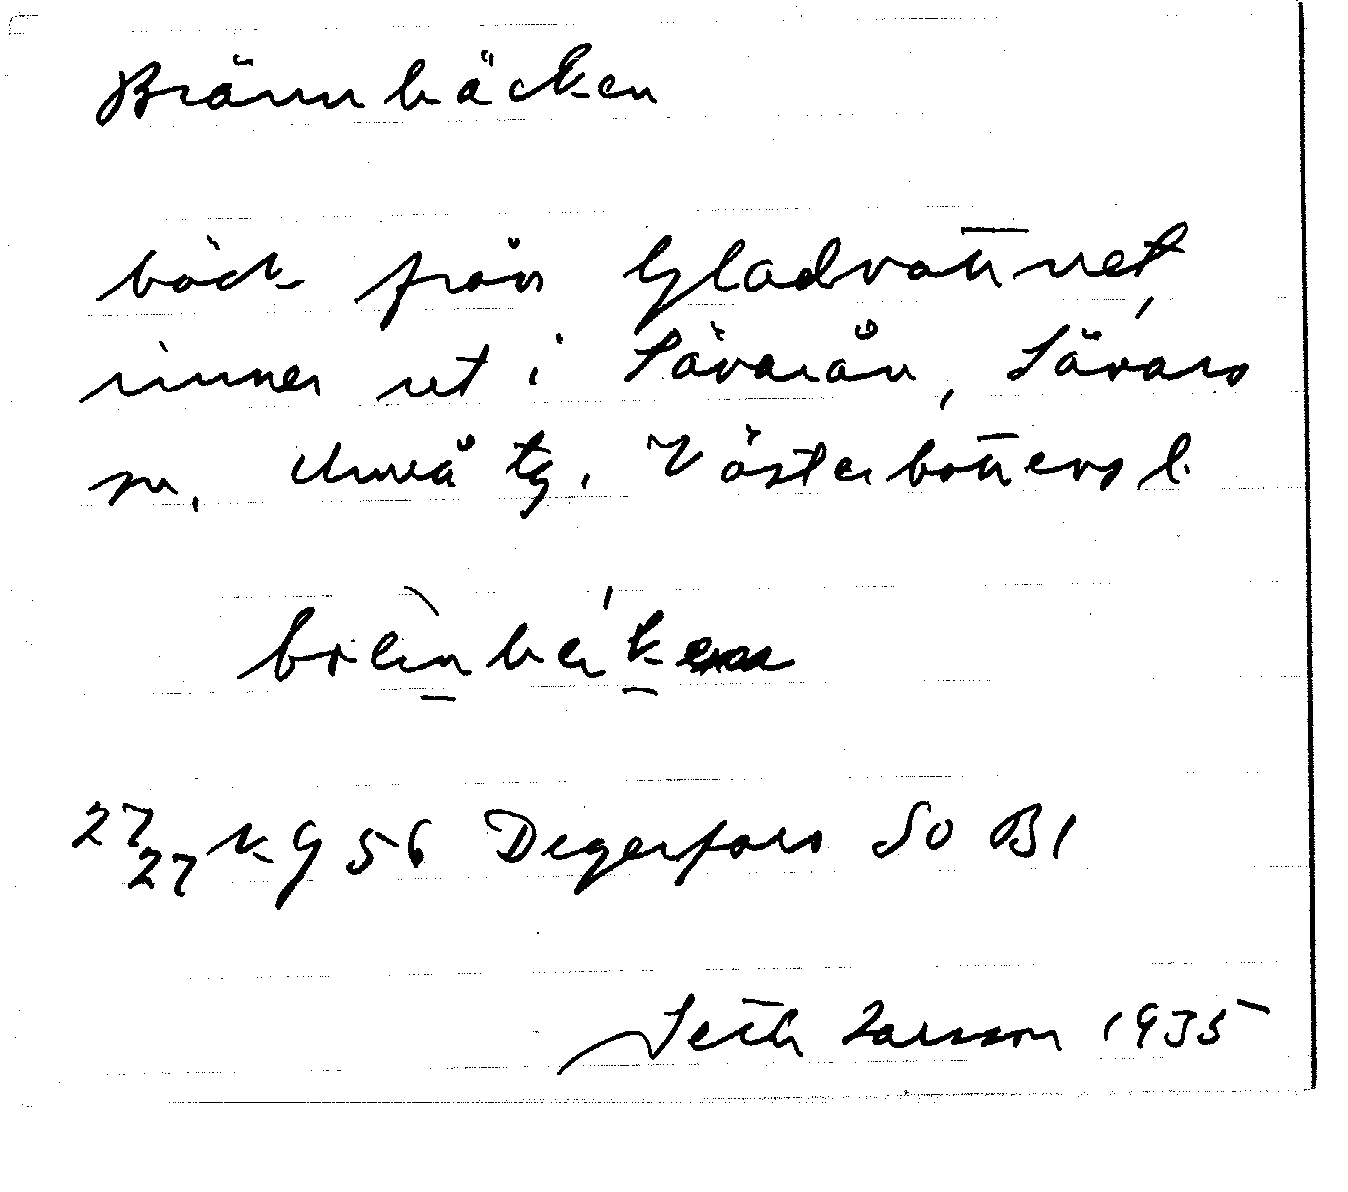 Brännbäcken
bäck från Gladvattnet,
rinner ut i Sävarån, Sävars
sn. Umeå tg. Västerbottens l.
27/27 kg 56 Degerfors SO Bl
Seth Larsson 1935